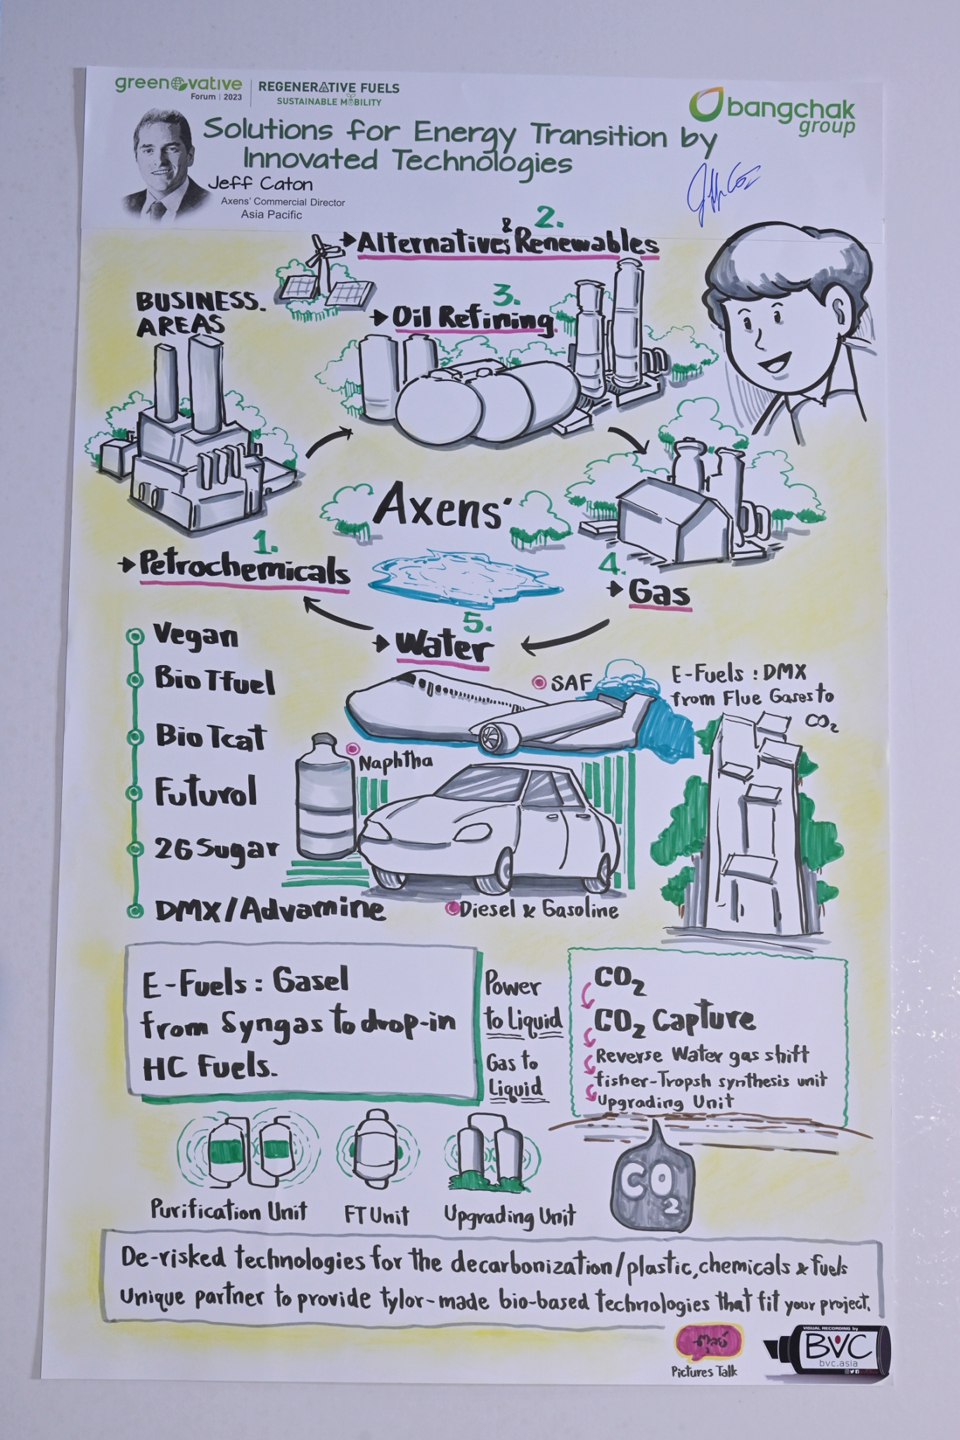 greenovative
Forum | 2023
REGENERATIVE FUELS
SUSTAINABLE MOBILITY
bangchak
group
Solutions for Energy Transition by
Innovated Technologies
Jeff Caton
Axens' Commercial Director
Asia Pacific
2.
Alternatives & Renewables
BUSINESS.
AREAS
3.
Oil Refining
Axens'
1.
Petrochemicals
4.
Gas
5.
Water
Vegan
Bio Tfuel
Bio Tcat
Futurol
26 Sugar
DMX/Advamine
SAF
Naphtha
Diesel & Gasoline
E-Fuels : DMX
from Flue Gases to
CO2
E-Fuels : Gasel
from Syngas to drop-in
HC Fuels.
Power
to Liquid
Gas to
Liquid
CO2
CO2 Capture
Reverse Water gas shift
fisher-Tropsh synthesis unit
Upgrading Unit
Purification Unit
FT Unit
Upgrading Unit
CO2
De-risked technologies for the decarbonization/plastic, chemicals & fuels
Unique partner to provide tylor-made bio-based technologies that fit your project.
Pictures Talk
VISUAL RECORDING by
BVC
bvc.asia